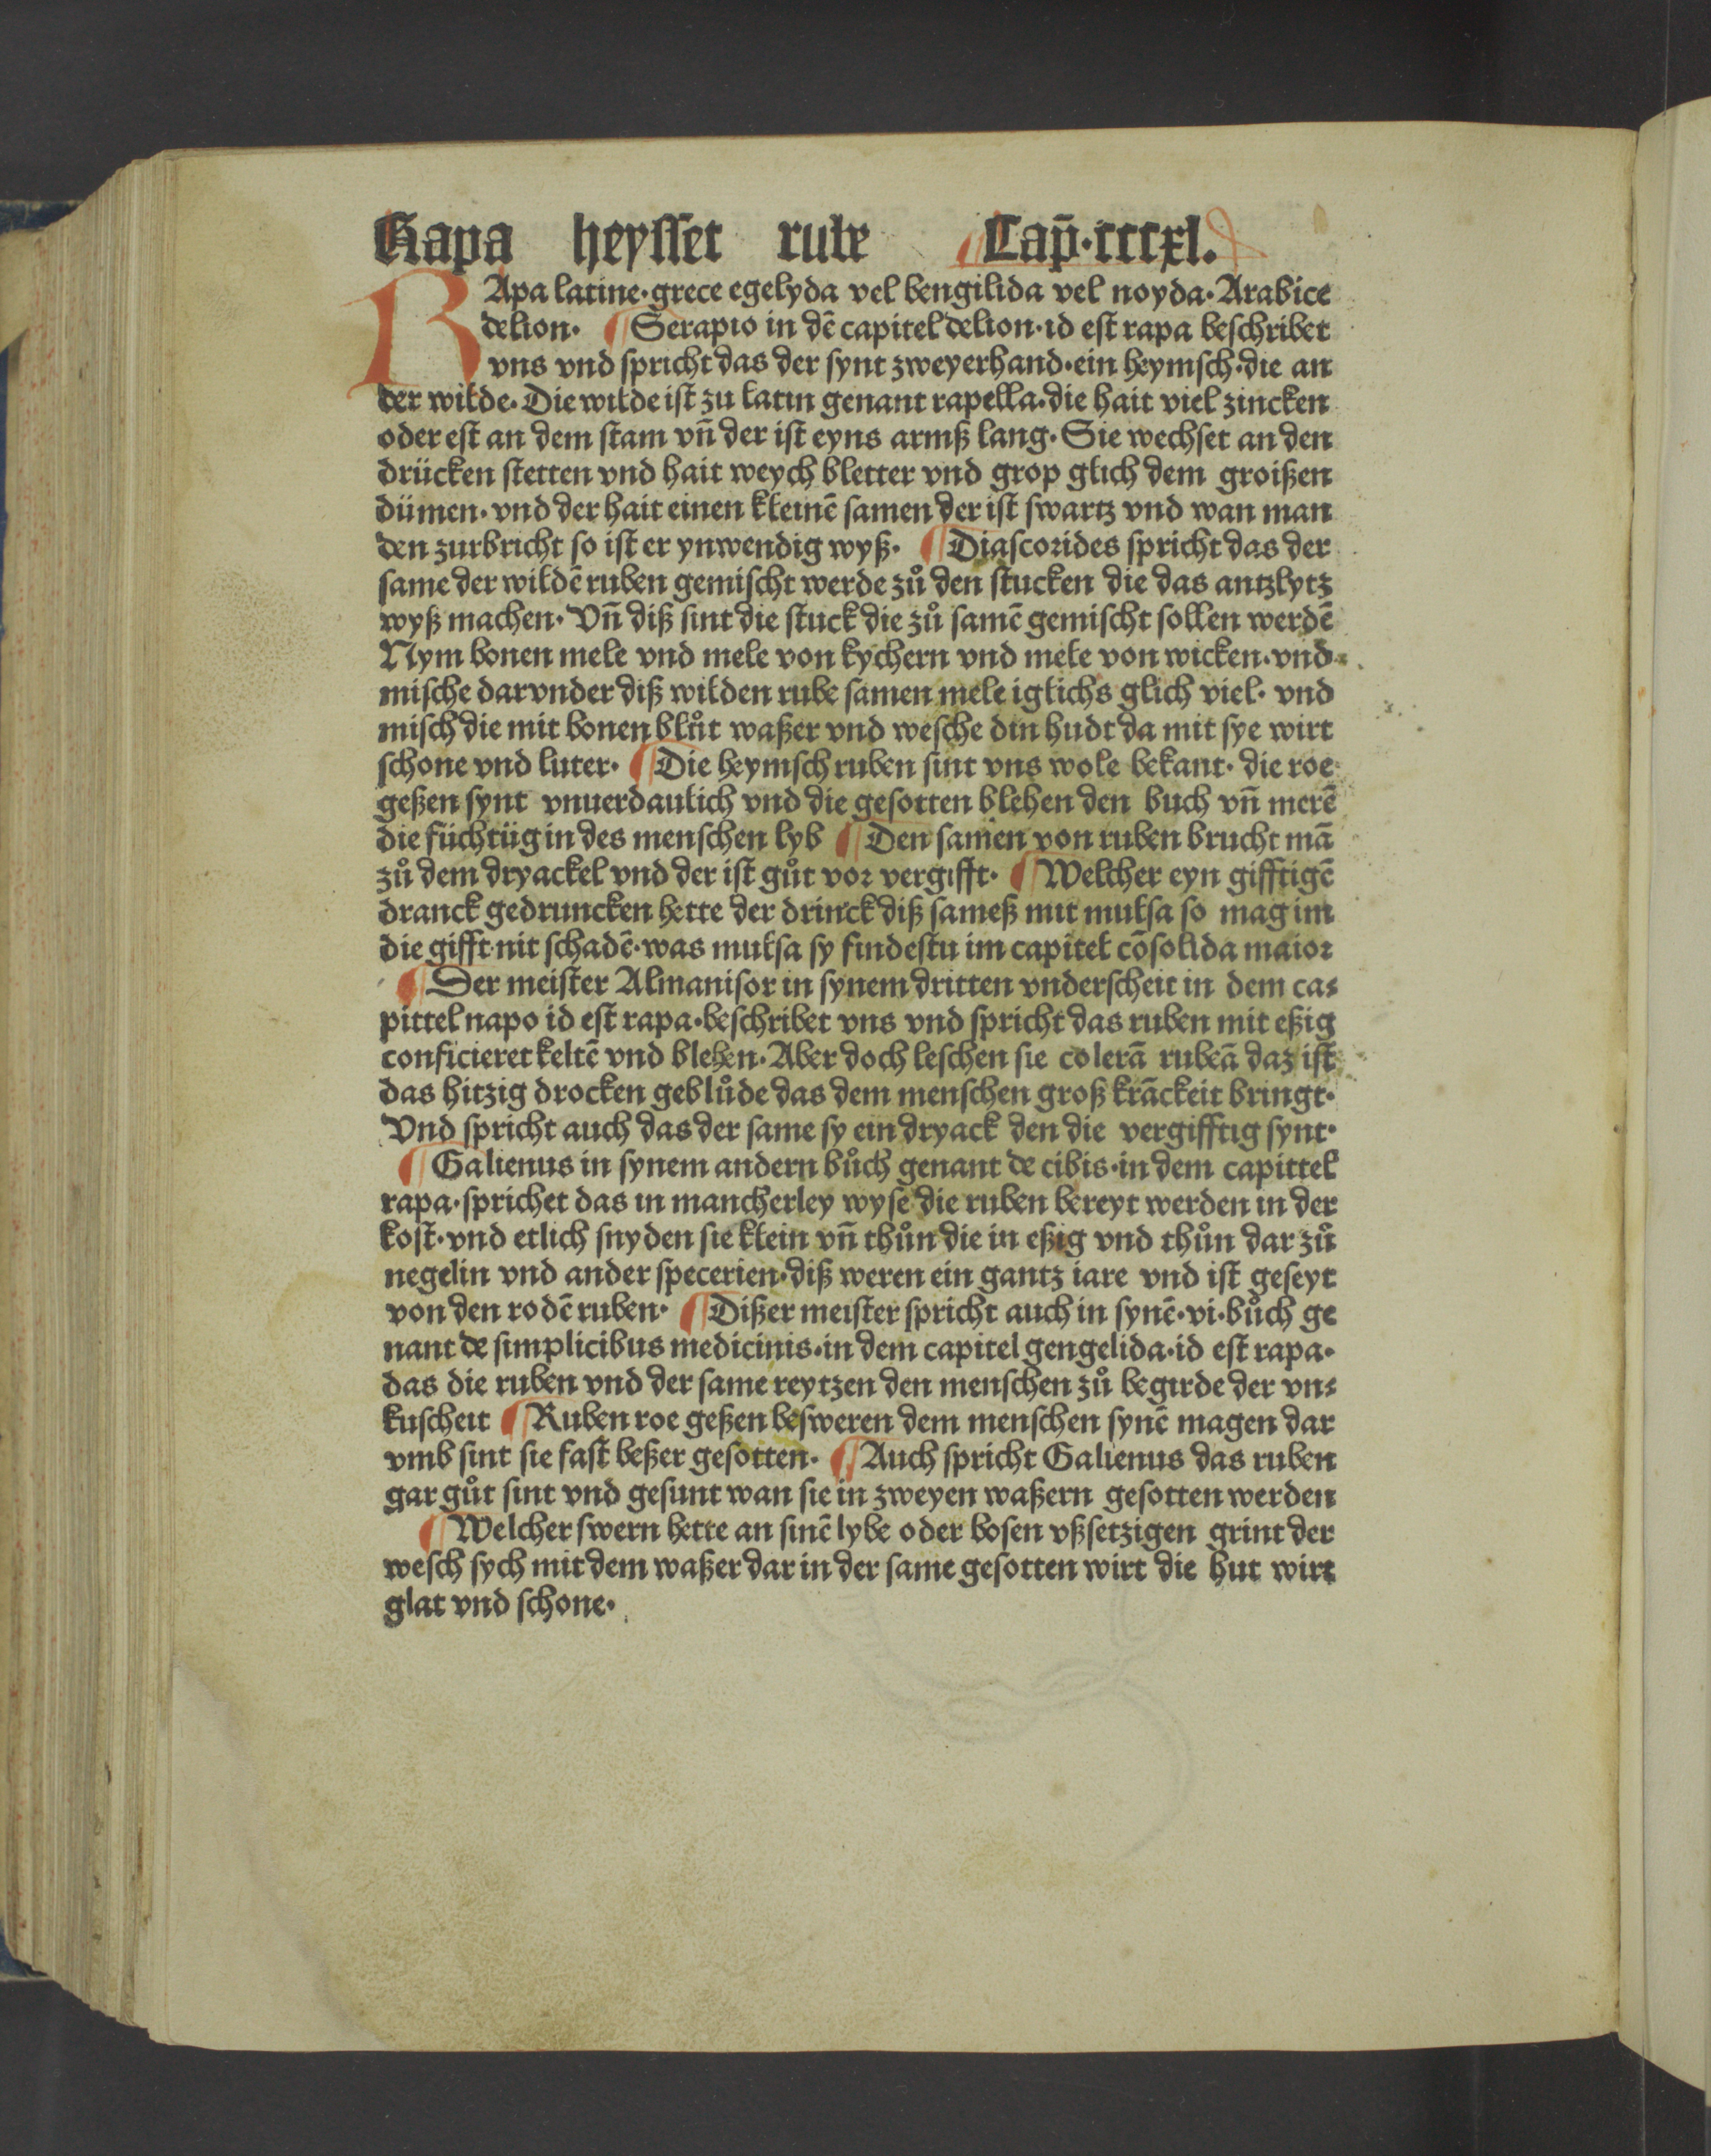 Rapa heysset rube Cap̄·cccxl.
RApa latine·grece egelyda vel bengilida vel noyda·Arabice
delion· ¶Serapio in dē capitel delion·id est rapa beschribet
vns vnd spricht das der synt zweyerhand·ein heymsch·die an
der wilde·Die wilde ist zu latin genant rapella·die hait viel zincken
oder est an dem stam vn̄ der ist eyns armß lang·Sie wechset an den
drücken stetten vnd hait weych bletter vnd grop glich dem groißen
dümen·vnd der hait einen kleinē samen der ist swartz vnd wan man
den zurbricht so ist er ynwendig wyß· ¶Diascorides spricht das der
same der wildē ruben gemischt werde zů den stucken die das antzlytz
wyß machen·Vn̄ diß sint die stuck die zů samē gemischt sollen werdē
Nym bonen mele vnd mele von kychern vnd mele von wicken·vnd
mische darvnder diß wilden rube samen mele iglichs glich viel·vnd
misch die mit bonen blůt waßer vnd wesche din hudt da mit sye wirt
schone vnd luter· ¶Die heymsch ruben sint vns wole bekant·die roe
geßen synt vnuerdaulich vnd die gesotten blehen den buch vn̄ merē
die füchtüg in des menschen lyb ¶Den samen von ruben brucht mā
zů dem dryackel vnd der ist gůt vor vergifft· ¶Welcher eyn gifftigē
dranck gedruncken hette der drinck diß sameß mit mulsa so mag im
die gifft nit schadē·was mulsa sy findestu im capitel cōsolida maior
¶Der meister Almanisor in synem dritten vnderscheit in dem ca⸗
pittel napo id est rapa·beschribet vns vnd spricht das ruben mit eßig
conficieret keltē vnd blehen·Aber doch leschen sie colerā rubeā daz ist
das hitzig drocken geblůde das dem menschen groß krāckeit bringt·
Vnd spricht auch das der same sy ein dryack den die vergifftig synt·
¶Galienus in synem andern bůch genant de cibis·in dem capittel
rapa·sprichet das in mancherley wyse die ruben bereyt werden in der
kost·vnd etlich snyden sie klein vn̄ thůn die in eßig vnd thůn dar zů
negelin vnd ander specerien·diß weren ein gantz iare vnd ist geseyt
von den rodē ruben· ¶Dißer meister spricht auch in synē·vi·bůch ge
nant de simplicibus medicinis·in dem capitel gengelida·id est rapa·
das die ruben vnd der same reytzen den menschen zů begirde der vn⸗
kuscheit ¶Ruben roe geßen besweren dem menschen synē magen dar
vmb sint sie fast beßer gesotten· ¶Auch spricht Galienus das ruben
gar gůt sint vnd gesunt wan sie in zweyen waßern gesotten werden
¶Welcher swern hette an sinē lybe oder bosen vßsetzigen grint der
wesch sych mit dem waßer dar in der same gesotten wirt die hut wirt
glat vnd schone·